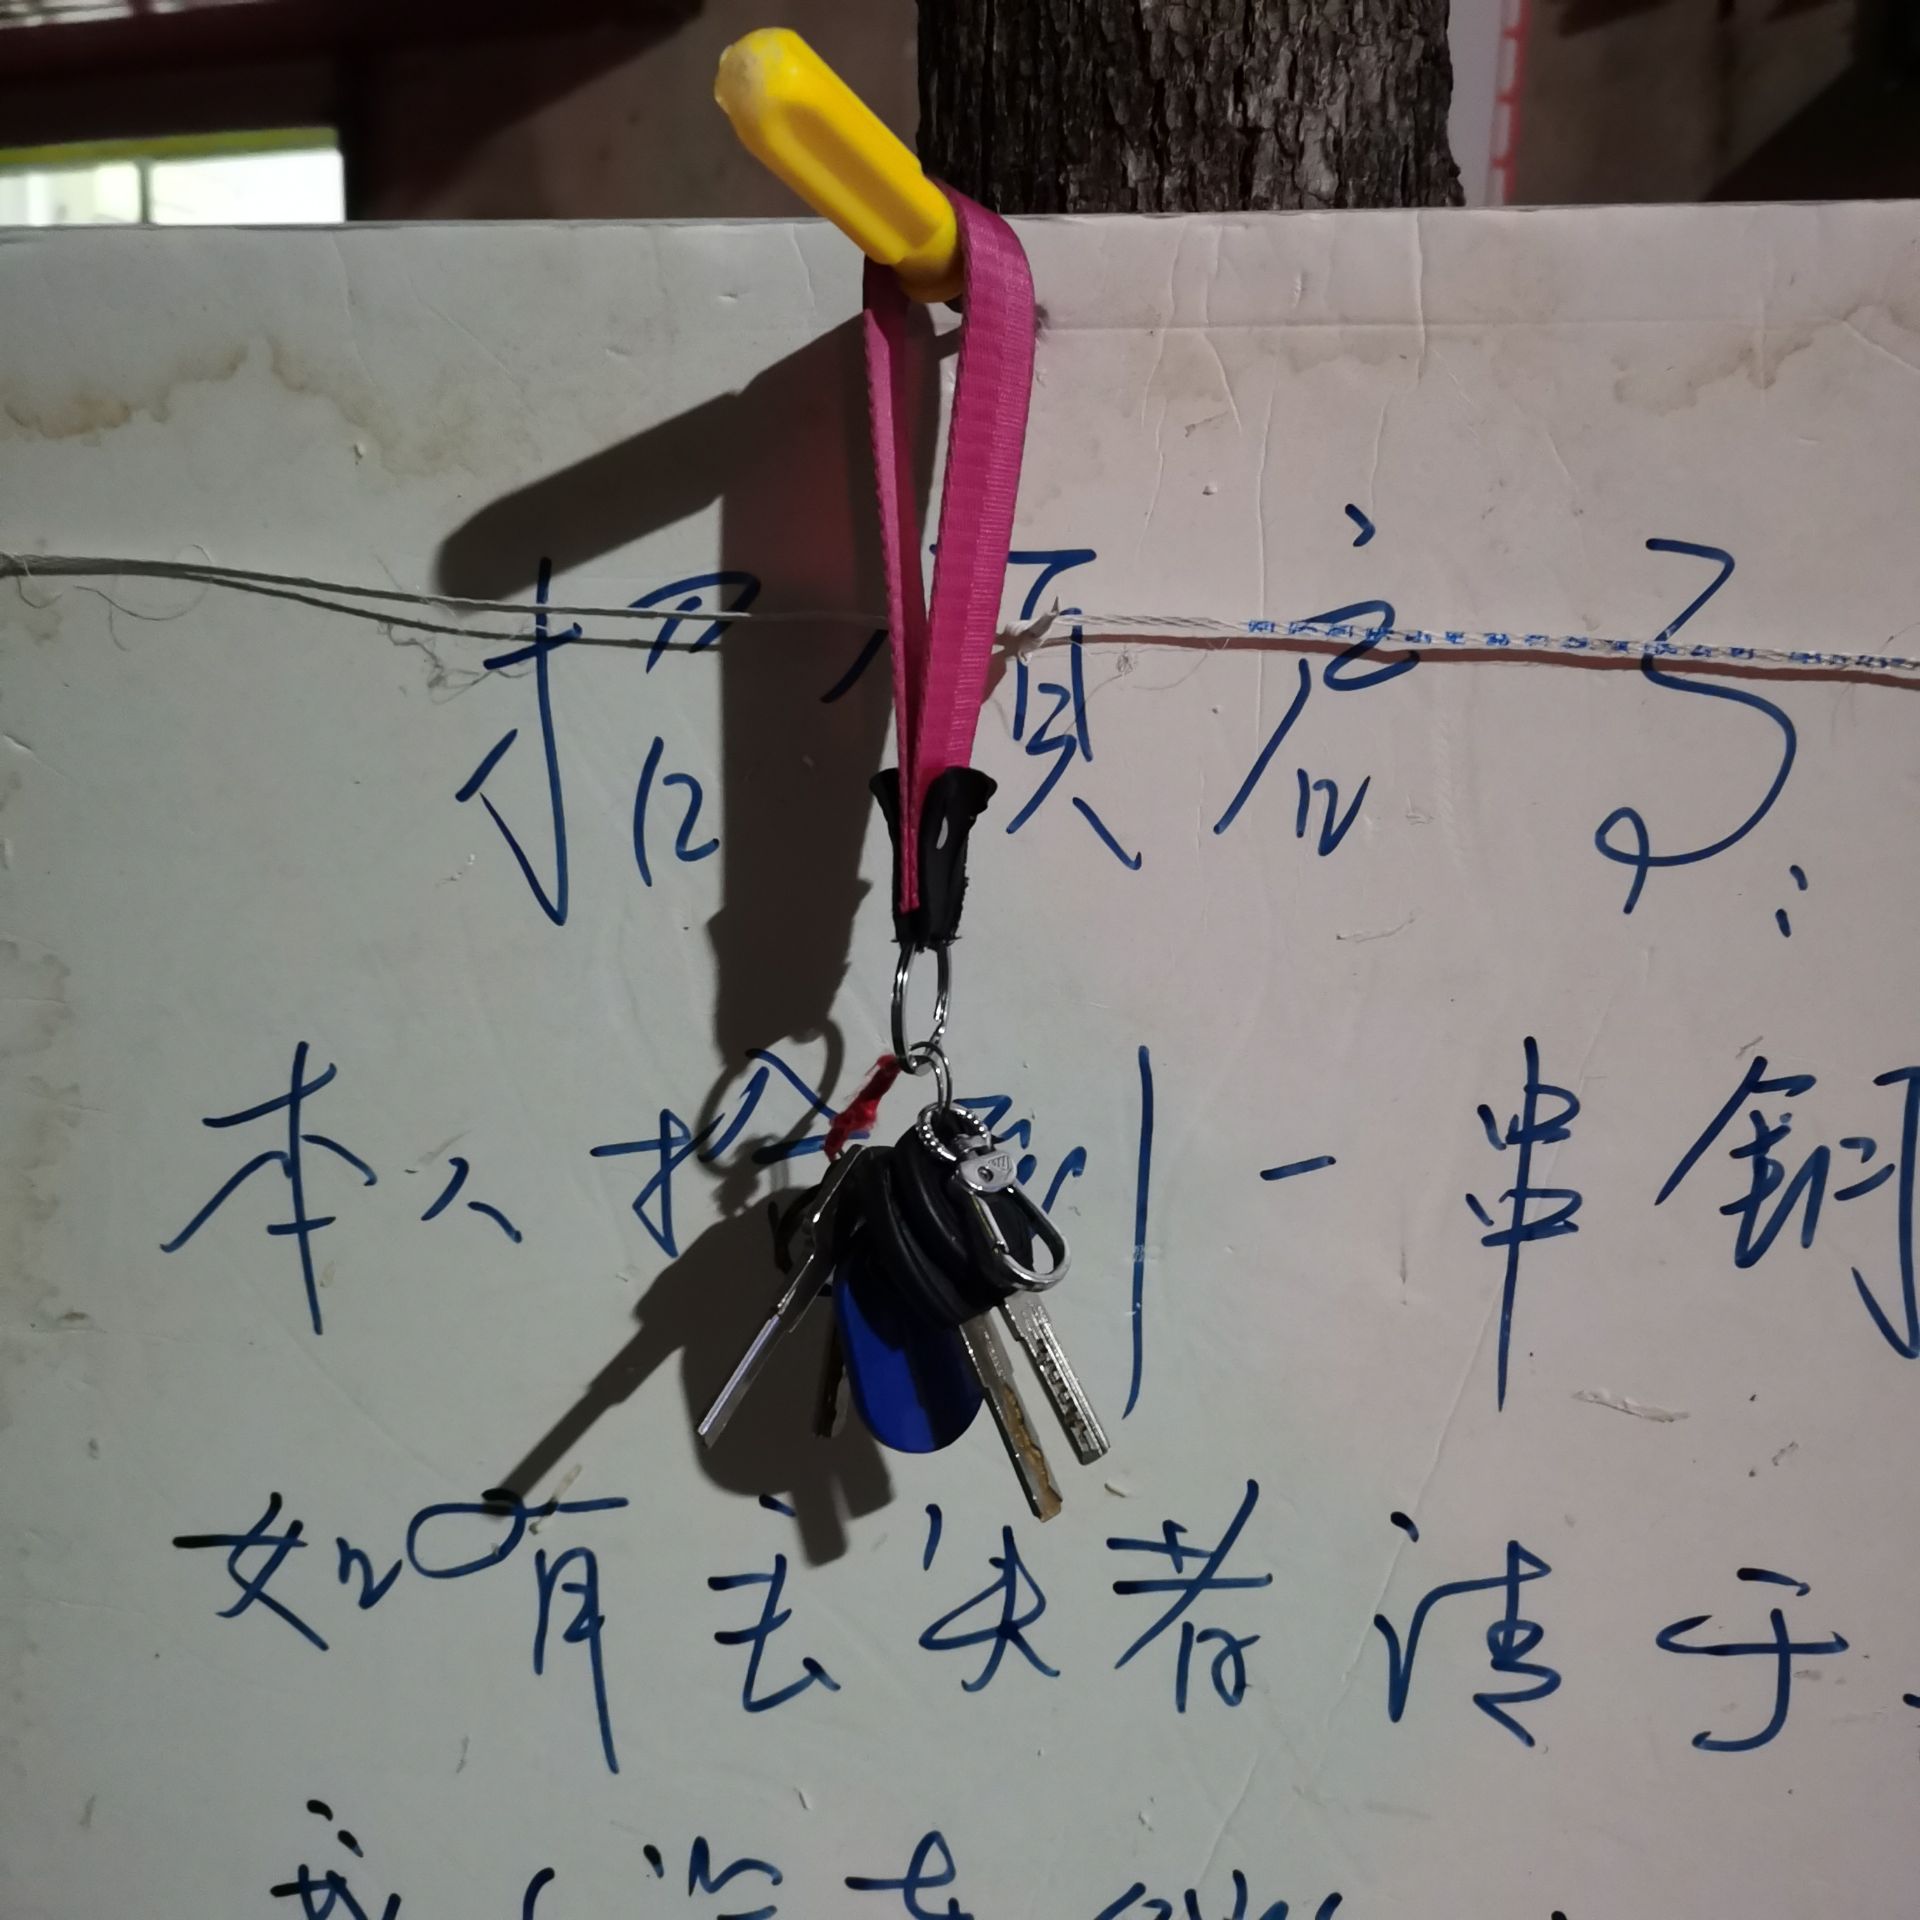 招领启事:
本人捡到一串钥
如有丢失者请于